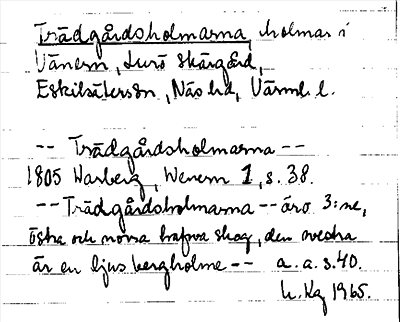 Trädgårdsholmarna, holmar i
Vänern, Lurö skärgård,
Eskilsäters sn, Näs hd, Värml. l.
-- Trädgårdsholmarna --
1805 Warberg, Wenern 1, s. 38.
-- Trädgårdsholmarna -- äro 3:ne,
östra och norra hafva skog, den vestra
är en ljus bergholme -- a.a.s.40.
1965.